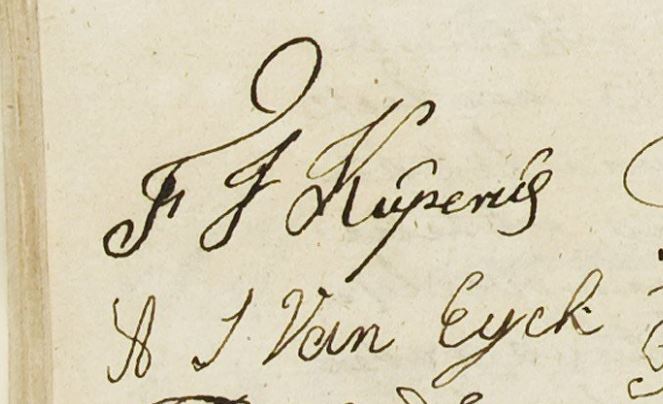 F J Kuperus
A J Van Eyck